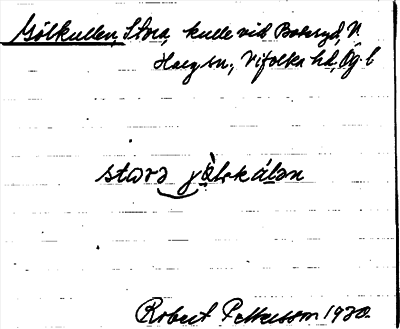 Gölkullen, Stora, kulle vid Boteryd, N.
Haeg sn., Vifolka hd, Ög. l
stora jölskálən
Robert Pettersson 1920.